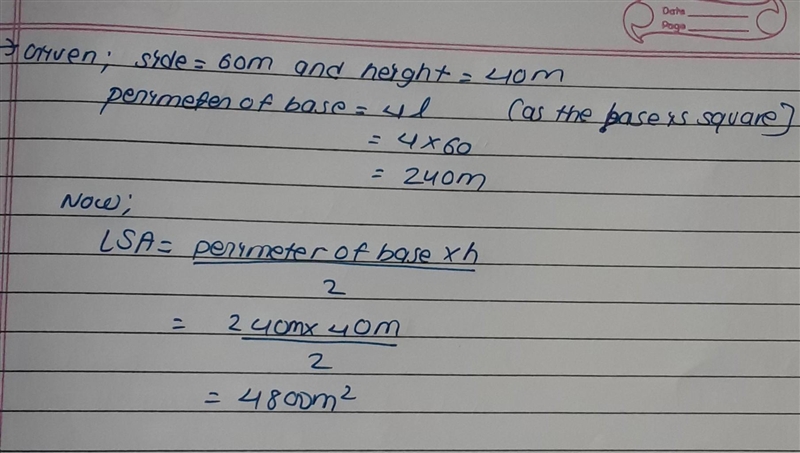 Date
Page
→ Given; side = 60m and height = 40m
perimeter of base = 4l (as the base is square]
= 4 × 60
= 240m
Now;
LSA = perimeter of base × h
2
= 240m × 40m
2
= 4800m²